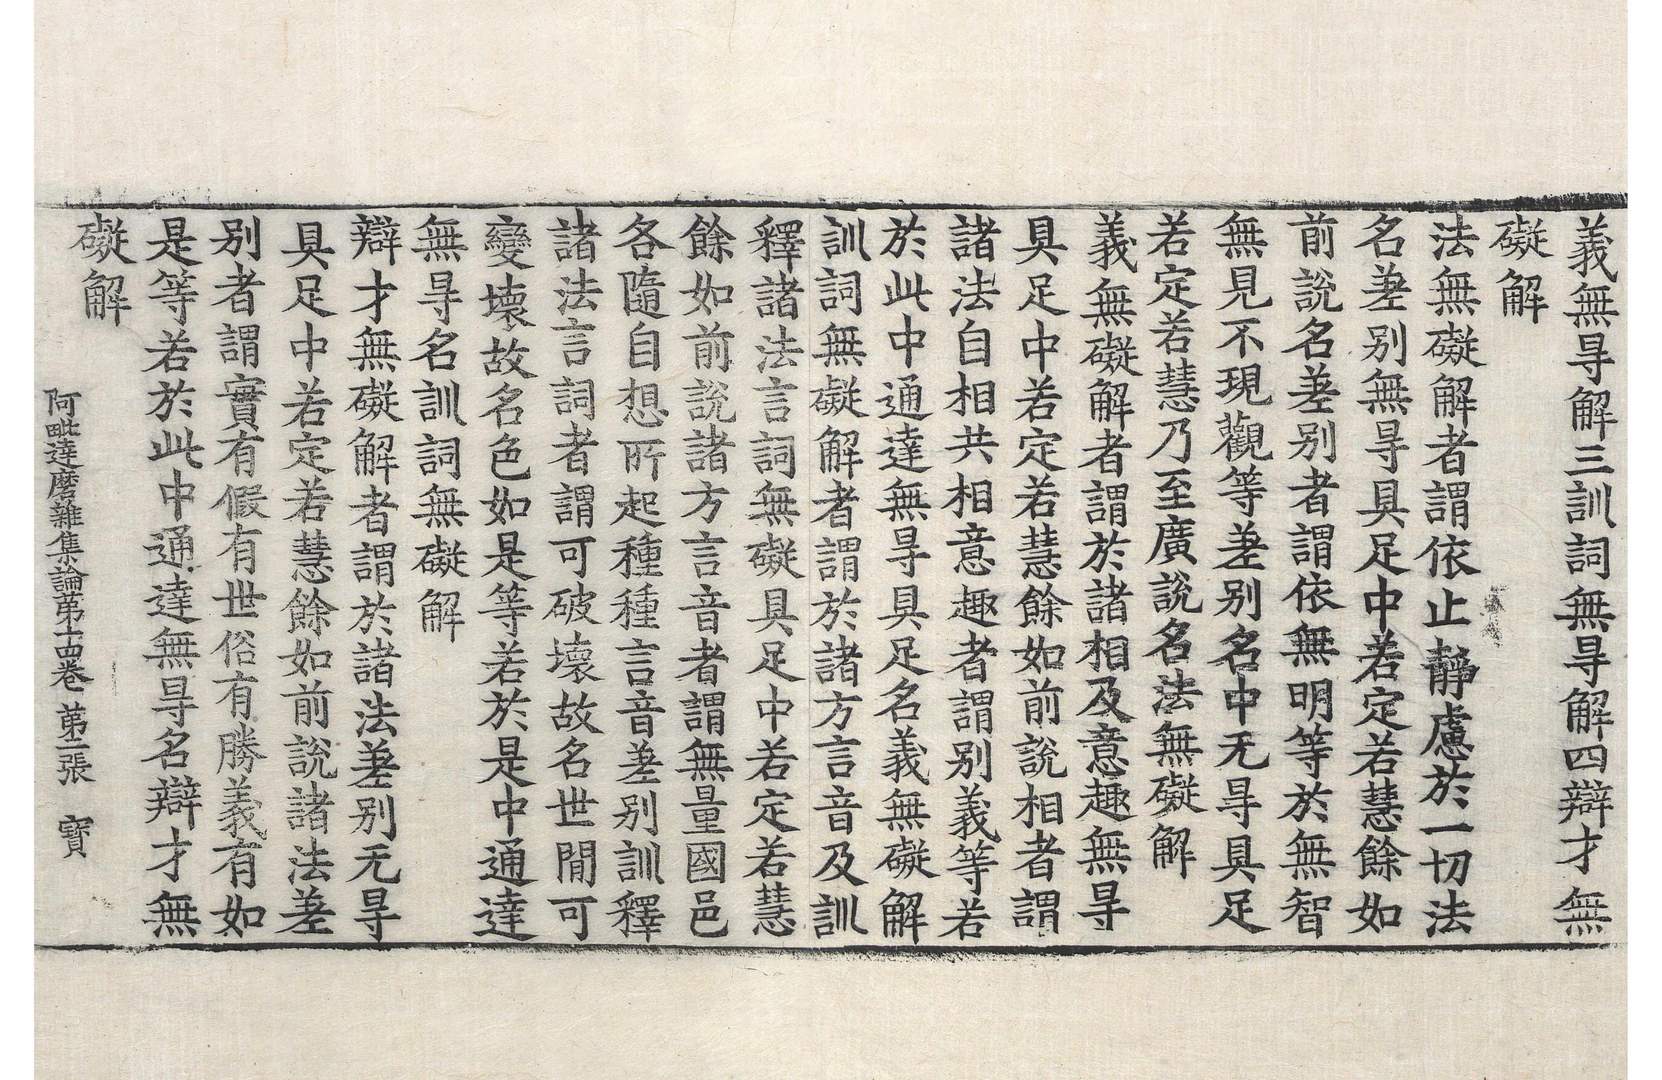 義無㝵解三訓詞無㝵解四辯才無
礙解
法無礙解者謂依止靜慮於一切法
名差别無㝵具足中若定若慧餘如
前說名差别者謂依無明等於無智
無見不現觀等差别名中无㝵具足
若定若慧乃至廣說名法無礙解
義無礙解者謂於諸相及意趣無㝵
具足中若定若慧餘如前說相者謂
諸法自相共相意趣者謂别義等若
於此中通達無㝵具足名義無礙解
訓詞無礙解者謂於諸方言音及訓
釋諸法言詞無礙具足中若定若慧
餘如前說諸方言音者謂無量國邑
各隨自想所起種種言音差别訓釋
諸法言詞者謂可破壞故名世閒可
變壞故名色如是等若於是中通達
無㝵名訓詞無礙解
辯才無礙解者謂於諸法差别无㝵
具足中若定若慧餘如前說諸法差
别者謂實有假有世俗有勝義有如
是等若於此中通達無㝵名辯才無
礙解
阿毗達磨雜集論苐十四卷 苐二張 寳